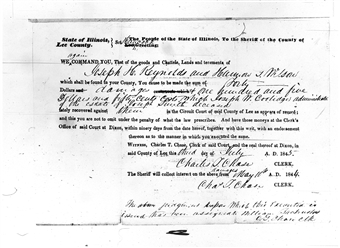 State of Illinois, The People of the State of Illinois, To the Sheriff of the County of
Lee County.
again
WE COMMAND YOU, That of the goods and Chattels, Lands and tenements of
Joseph H. Reynolds and Harmon T. Wilson
which shall be found in your County, You cause to be made the sum of Forty
Dollars damages one hundred and five
Dollars and fifty cents costs which Joseph W. Coolidge administrator
of the estate of Joseph Smith deceased
lately recovered against in the Circuit Court of said County of Lee as appears of record;
and this you are not to omit under the penalty of what the law prescribes. And have those moneys at the Clerk's
Office of said Court at Dixon, within ninety days from the date hereof, together with this writ, with an endorsement
thereon as to the manner in which you executed the same.
Witness, Charles T. Chase, Clerk of said Court, and the seal thereof, at Dixon, in
said County of Lee this third day of July A. D. 1845.
Charles T. Chase CLERK.
The Sheriff will collect interest on the above damages from May 11th A. D. 1844.
Chas. T. Chase CLERK.
The above judgment upon which this Execution is
issued has been assigned to William